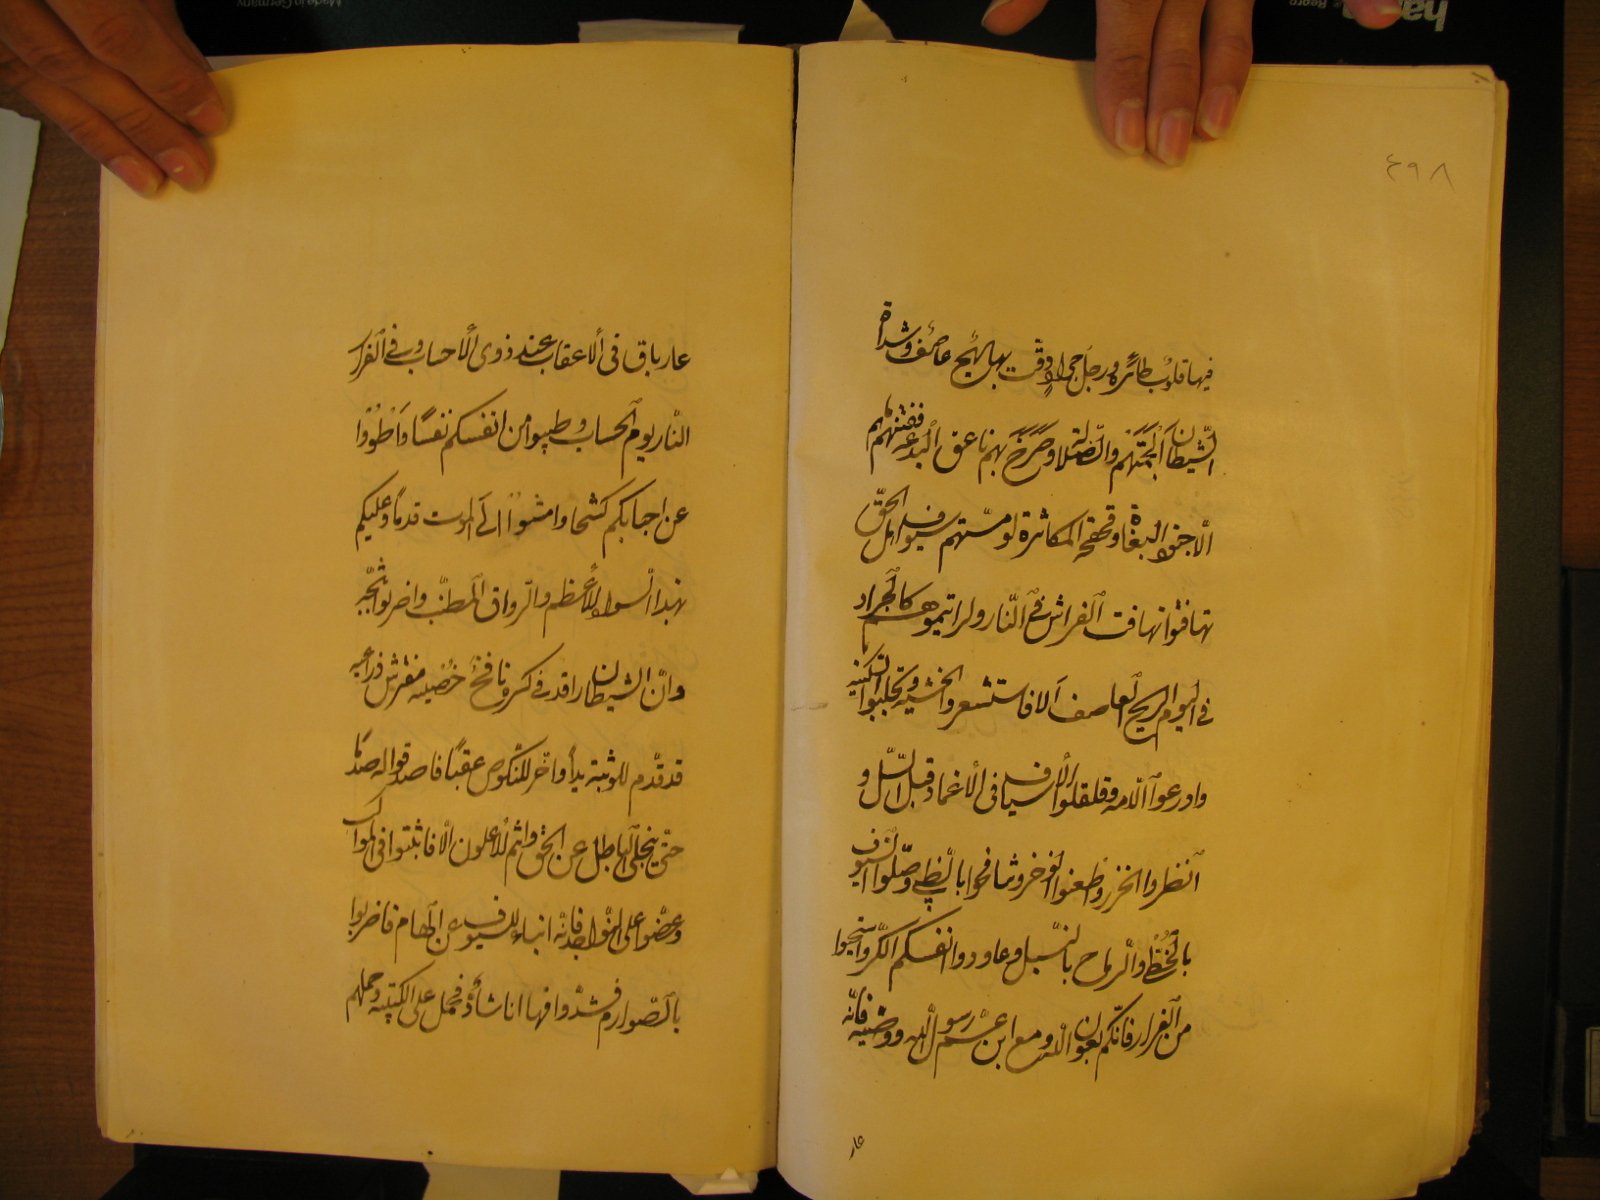 ٤٩٨
فيها قلوب طائره ورجل جراد دقت بها ريح عاصف وشداة
الشيطان ألجمتهم والضلالة وصرخ بهم ناعق البدعه ففتنهم
الا جنود البغاة وقحقحه المكاثرة لو مستهم سيوف اهل الحق
تهافتوا تهافت الفراش في النار ولرايتموهم كالجراد
في اليوم الريح العاصف ألا فاستشعروا الخشية وتجلببوا السكينه
وادرعوا اللامه وقلقلوا الأسياف في الأغماد قبل السل و
انظروا الخزر واطعنوا الوخر وتنافحوا بالظبى وصلوا السيوف
بالخطا والرماح بالنبل وعاودوا انفسكم الكر واستحيوا
من الفرار فانكم بعون الله ومع ابن عم رسول الله ووصيه فانه
عار
عار باق في ألاعقاب عند ذوى ألاحساب وفي الفرار
النار يوم الحساب وطيبوا من انفسكم نفسًا وأطووا
عن احبابكم كشحا وامشوا الى الموت قدمًا وعليكم
بهذا السواد الأعظم والرواق المطنب واضربوا ثبجه
وان الشيطان راقد في كسره نافخ خصييه مفترش ذراعيه
قد قدم للوثبة يدأ واخر للنكوص عقبًا فاصدقوا له صدًا
حتى ينجلى الباطل عن الحق وانتم الأعلون الا فاثبتوا في المواكب
وعضوا على النواجد فانه انباء للسيوف عن الهام فاضربوا
بالصوارم فشدوا فها انا شاد فحمل على الكتيبه وحملهم